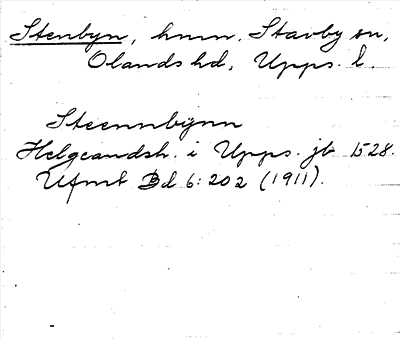 Stenbyn, hmn. Stavby sn,
Olands hd, Upps. l.
Steennbÿnn
Helgeandsh. i Upps. jb 1528.
Ufmt Bd 6: 202 (1911).